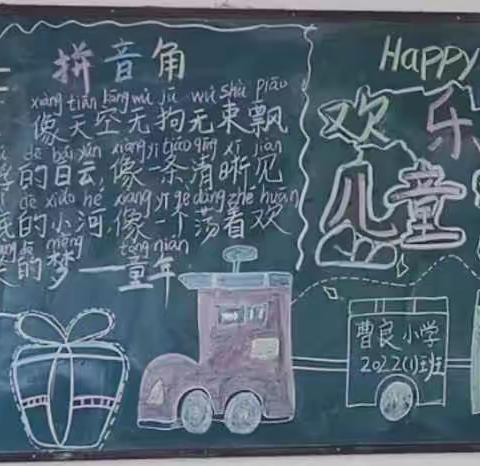 拼音角
xiàng tiān kōng wú jū wú shù piāo
像天空无拘无束飘
de bái yún xiàng yì tiáo qīng xī jiàn
的白云,像一条清晰见
de xiǎo hé xiàng yí gè dàng zhe huān
底的小河,像一个荡着欢
de mèng tóng nián
的梦——童年
Happy
欢乐
儿童
曹良小学
2022(1)班